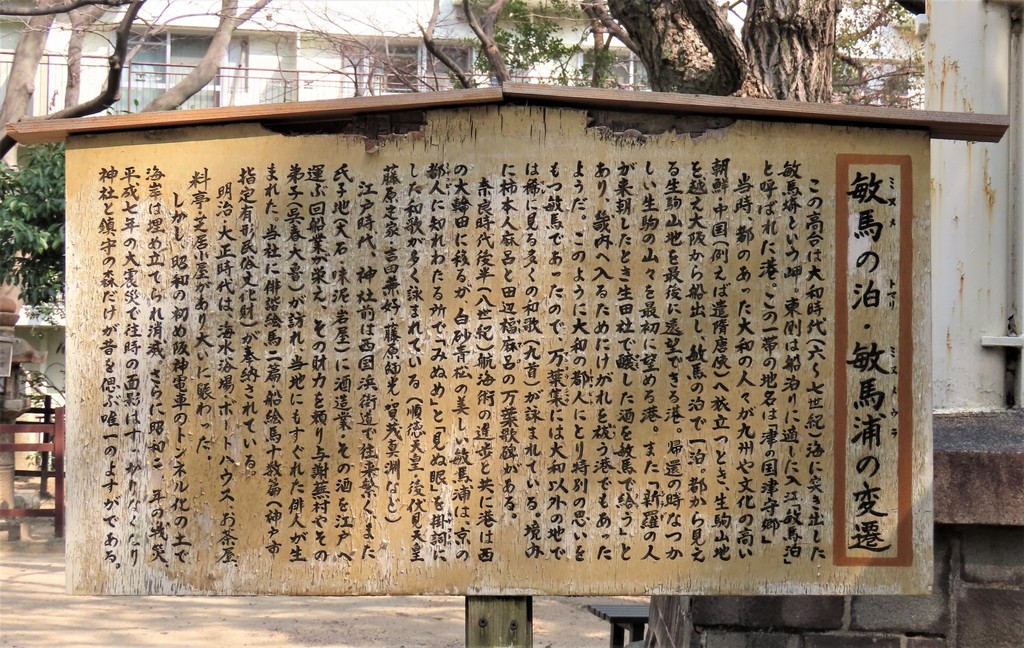 敏馬の泊・敏馬浦の変遷
ミヌメ トマリ ミヌメウラ
この高台は大和時代(六〜七世紀)海に突き出した
敏馬埼という岬、東側は船泊りに適した入江「敏馬泊」
と呼ばれた港。この一帯の地名は「津の国津守郷」
当時、都のあった大和の人々が九州や文化の高い
朝鮮・中国(例えば遣隋唐使)へ旅立つとき、生駒山地
を越え大阪から船出し、敏馬の泊で一泊。都から見え
る生駒山地を最後に遠望できる港。帰還の時なつか
しい生駒の山々を最初に望める港。また「新羅の人
が来朝したとき生田社で醸した酒を敏馬で給う」と
あり、畿内へ入るためにけがれを祓う港でもあった
ようだ。このように大和の都人にとり特別の思いを
もつ敏馬であったので、万葉集には大和以外の地で
は稀に見る多くの和歌(九首)が詠まれている。境内
に柿本人麻呂と田辺福麻呂の万葉歌碑がある。
奈良時代後半(八世紀)航海術の進歩と共に港は西
の大輪田に移るが、白砂青松の美しい敏馬浦は、京の
都人に知れわたる所で「みぬめ」と「見ぬ眼」を掛詞に
した和歌が多く詠まれている。(順徳天皇・後伏見天皇
藤原定家・吉田兼好・藤原師光・賀茂真淵など)
江戸時代、神社前は西国浜街道で往来繁くまた
氏子地(大石・味泥・岩屋)に酒造業・その酒を江戸へ
運ぶ回船業が栄え、その財力を頼り与謝蕪村やその
弟子(呉春・大魯)が訪れ、当地にもすぐれた俳人が生
まれた。当社に俳諧絵馬二篇・船絵馬十数篇(神戸市
指定有形民俗文化財)が奉納されている。
明治・大正時代は、海水浴場、ボートハウス、お茶屋、
料亭・芝居小屋があり大いに賑わった。
しかし、昭和の初め阪神電車のトンネル化の土で
海岸は埋め立てられ消滅、さらに昭和二十年の戦災、
平成七年の大震災で往時の面影はすっかりなくなり
神社と鎮守の森だけが昔を偲ぶ唯一のよすがである。